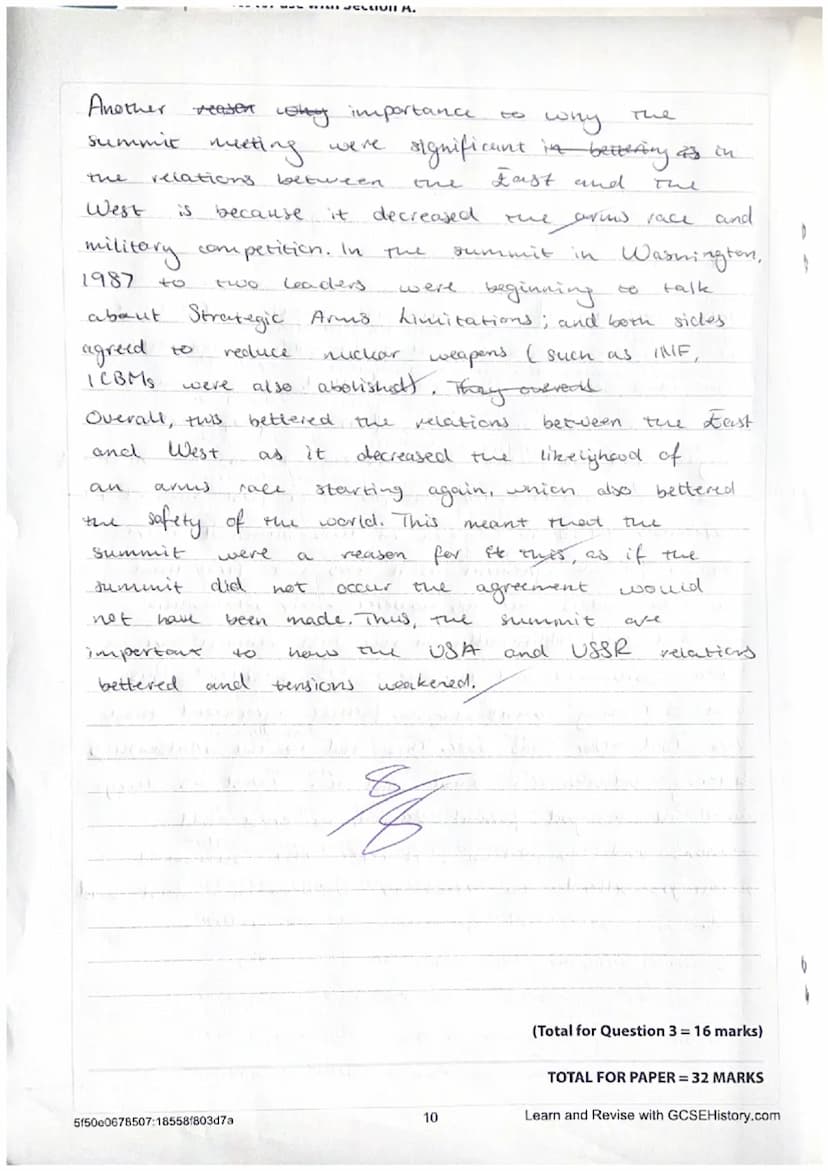 use with Section A.
Another reason why importance to why the
summit meeting were significant in bettering is in
the relations between the East and the
West is because it decreased the arms race and
military competition. In the summit in Washington,
1987 to two leaders were beginning to talk
about Strategic Arms Limitations; and both sides
agreed to reduce nuclear weapons (such as INF,
ICBMs were also abolished). They overall
Overall, this bettered the relations between the East
and West as it decreased the likelyhood of
an arms race starting again, which also bettered
the safety of the world. This meant that the
summit were a reason for it this, as if the
summit did not occur the agreement would
not have been made. Thus, the summit are
important to how the USA and USSR relations
bettered and tensions weakened.
8/8
(Total for Question 3 = 16 marks)
TOTAL FOR PAPER = 32 MARKS
10
Learn and Revise with GCSEHistory.com